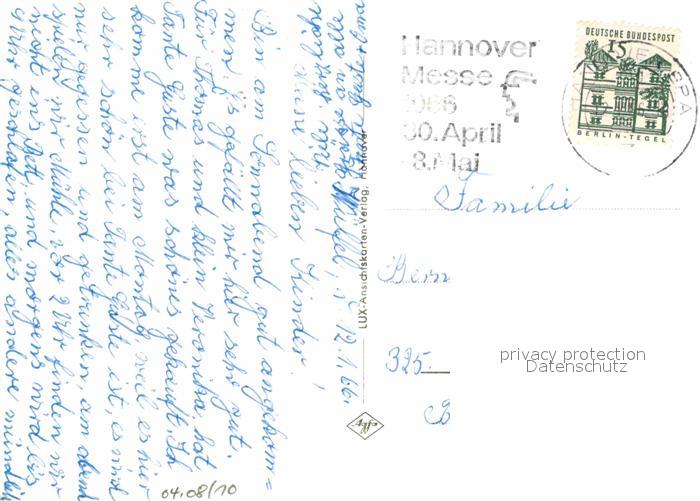 12.1.66.
Meine lieben Kinder!
Bin am Sonnabend gut angekom=
men, es gefällt mir hier sehr gut.
Für Thomas und klein Veronika hat
Tante Guste was schönes gekauft. Ich
komme erst am Montag, weil es hier
sehr schön bei Tante Guste ist, es wird
nur gegessen und getrunken, am abend
spielen wir Mühle, vor 2 Uhr finden wir
nicht ins Bett, und morgens wird bis
9 Uhr geschlafen, alles andere mündlich
04.08/10
LUX-Ansichtskarten-Verlag, Hannover
Agfa
Hannover
Messe
1966
30. April
8. Mai
DEUTSCHE BUNDESPOST
15
BERLIN-TEGEL
Familie
Bern
325
B
privacy protection
Datenschutz